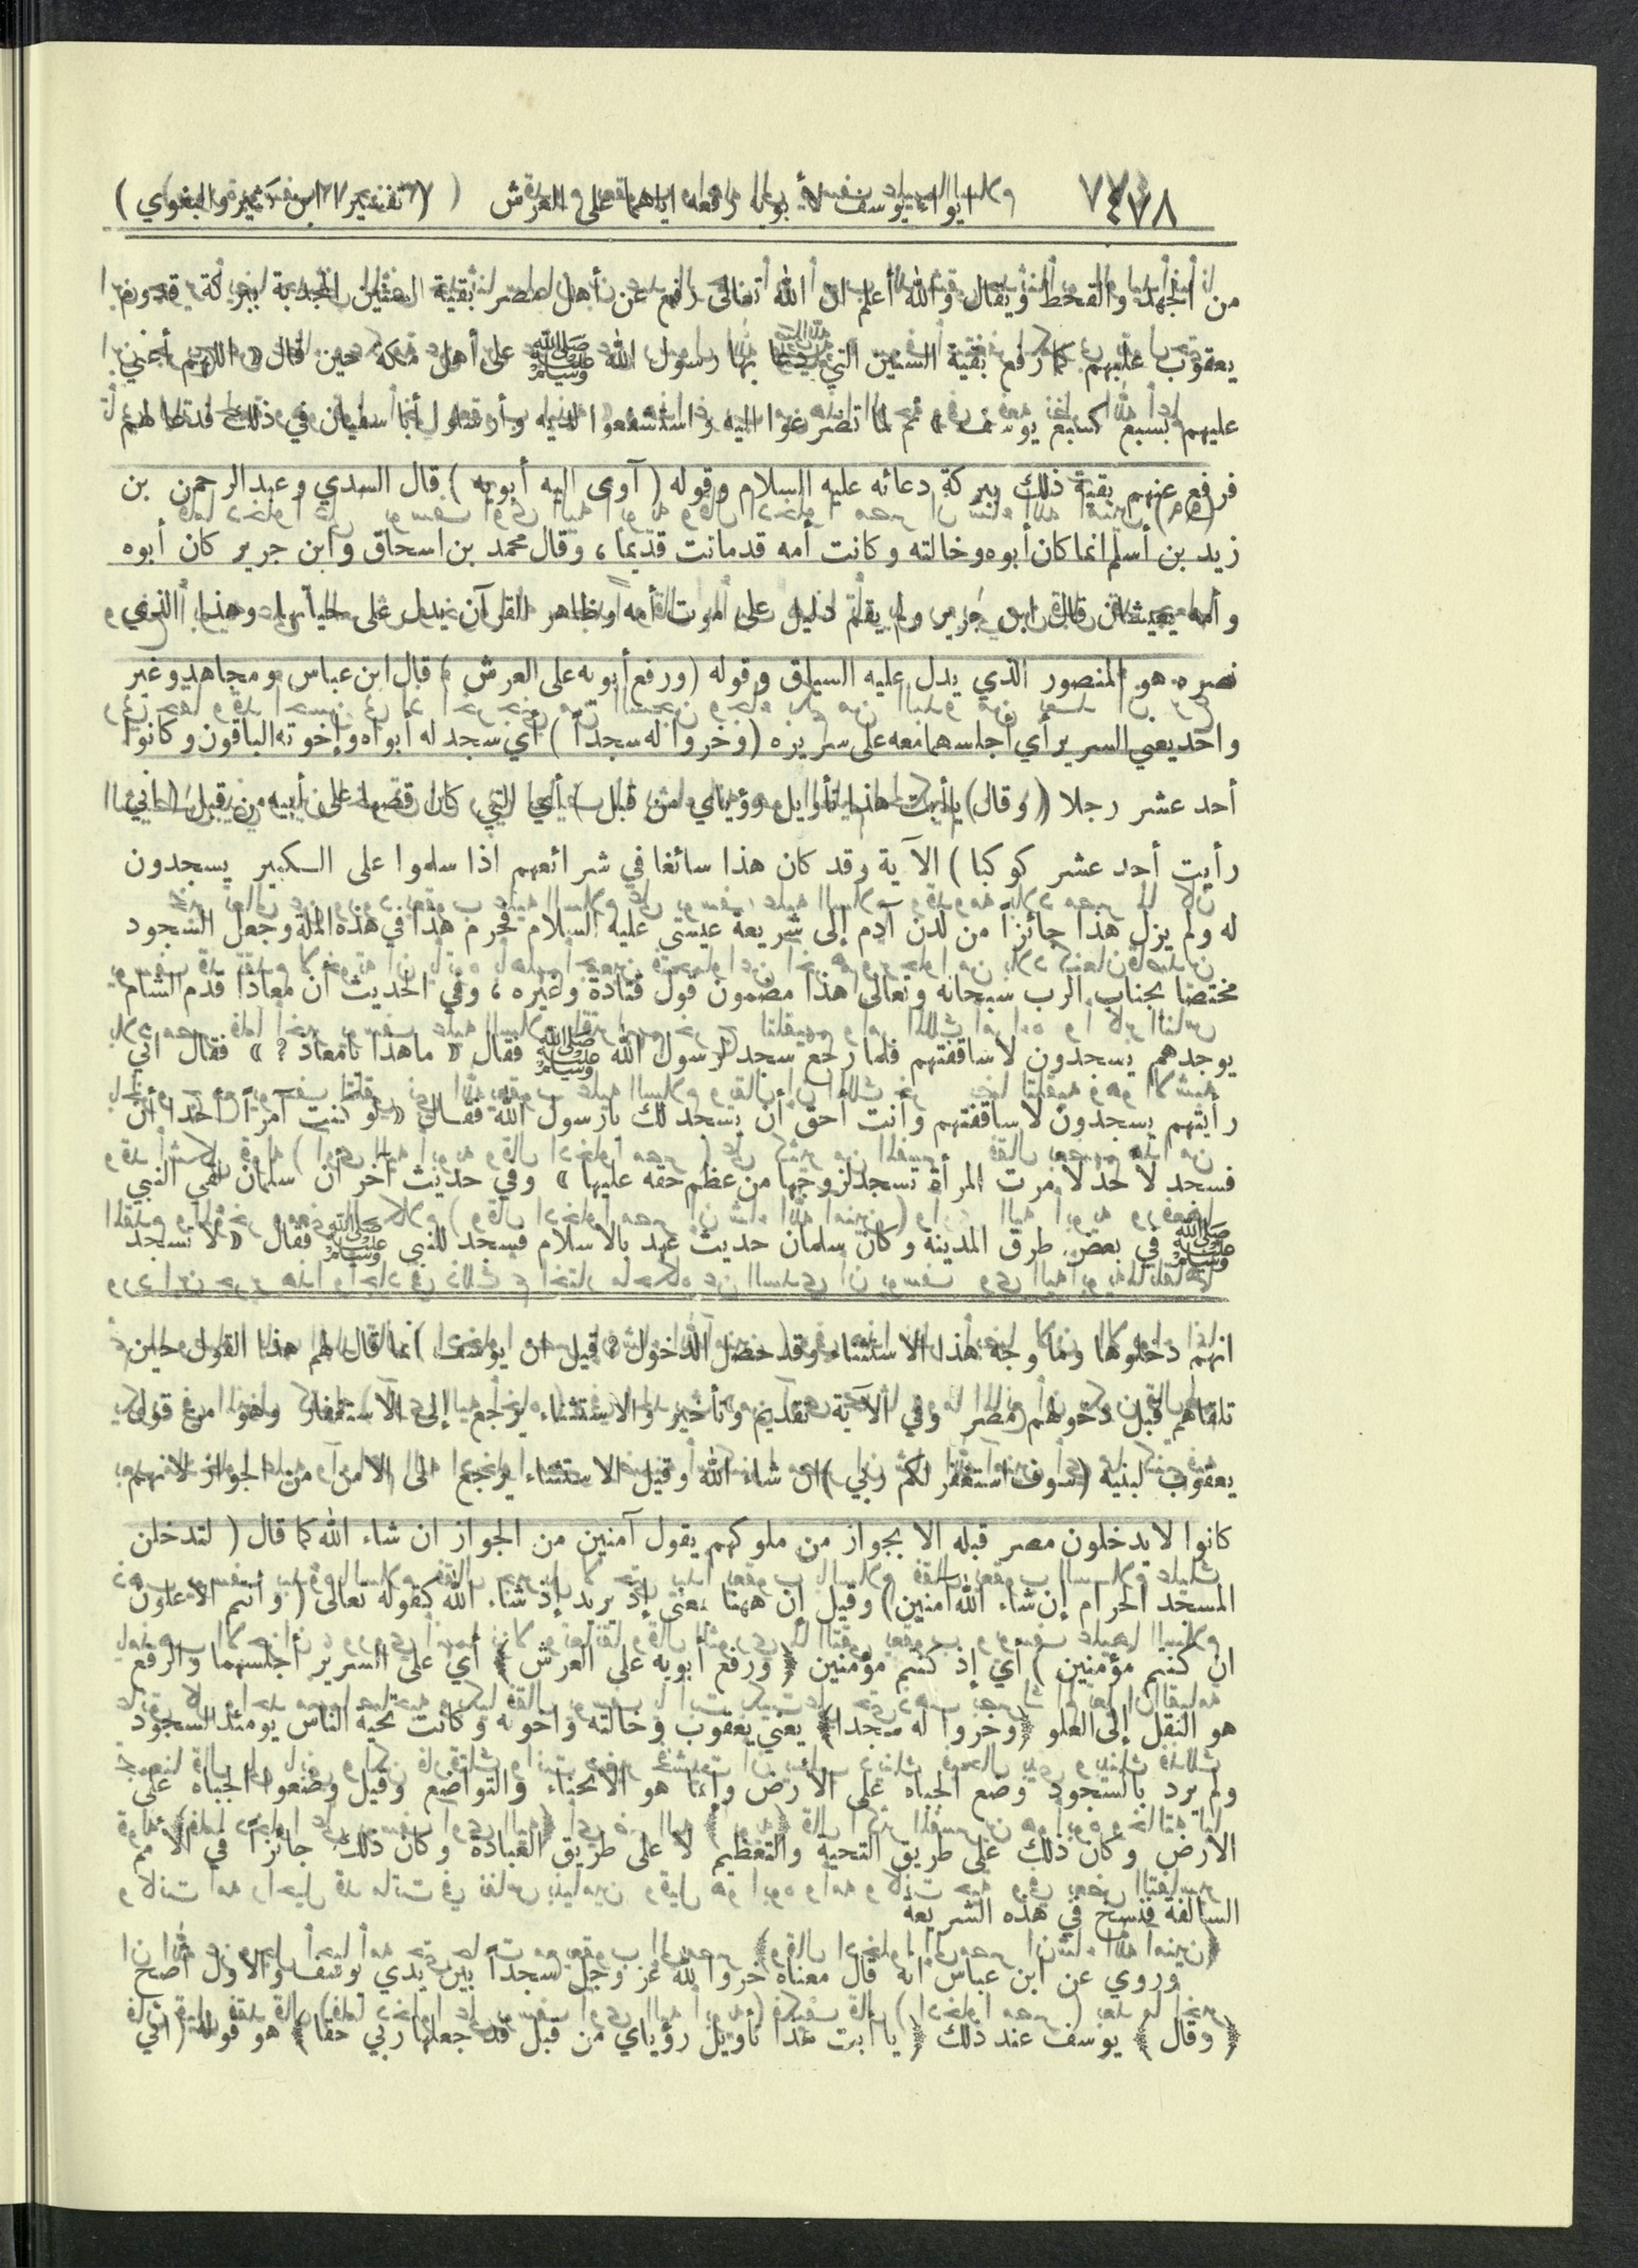 ٤٧٨ ايواء يوسف لأبويه ورفعه اياهما على العرش ( تفسيرا ابن كثير والبغوي )
من الجهد والقحط ويقال والله أعلم ان الله تعالى رفع عن أهل مصر بقية السنين المجدبة ببركة قدوم
يعقوب عليهم كما رفع بقية السنين التي دعا بها رسول الله ﷺ على أهل مكة حين قال « اللهم أعني
عليهم بسبع كسبع يوسف » ثم لما تضرعوا اليه واستشفعوا لديه وأرسلوا أبا سفيان في ذلك فدعا لهم
فرفع عنهم بقية ذلك ببركة دعائه عليه السلام وقوله ( آوى اليه أبويه ) قال السدي وعبد الرحمن بن
زيد بن أسلم انما كان أبوه وخالته وكانت أمه قد ماتت قديما ، وقال محمد بن اسحاق وابن جرير كان أبوه
وأمه يعيشان قال ابن جرير ولم يقم دليل على موت أمه وظاهر القرآن يدل على حياتها وهذا الذي
نصره هو المنصور الذي يدل عليه السياق وقوله (ورفع أبويه على العرش ) قال ابن عباس ومجاهد وغير
واحد يعني السرير أي أجلسهما معه على سريره (وخروا له سجداً ) أي سجد له أبواه وإخوته الباقون وكانوا
أحد عشر رجلا ( وقال يا أبت هذا تأويل رؤياي من قبل ) أي التي كان قصها على أبيه من قبل ( اني
رأيت أحد عشر كوكبا ) الآية وقد كان هذا سائغا في شرائعهم اذا سلموا على الكبير يسجدون
له ولم يزل هذا جائزاً من لدن آدم إلى شريعة عيسى عليه السلام فحرم هذا في هذه الملة وجعل السجود
مختصا بجناب الرب سبحانه وتعالى هذا مضمون قول قتادة وغيره ، وفي الحديث أن معاذا قدم الشام
يوجدهم يسجدون لاساقفتهم فلما رجع سجد لرسول الله ﷺ فقال « ماهذا يا معاذ ? » فقال اني
رأيتهم يسجدون لاساقفتهم وأنت أحق أن يسجد لك يارسول الله فقال « لو كنت آمراً أحدا أن
فسجد لاحد لامرت المرأة تسجد لزوجها من عظم حقه عليها » وفي حديث آخر أن سلمان لقي النبي
ﷺ في بعض طرق المدينة وكان سلمان حديث عهد بالاسلام فسجد للنبي ﷺ فقال « لا تسجد
انهم دخلوها وما وجه هذا الاستثناء وقد حصل الدخول ? قيل ان يوسف انما قال لهم هذا القول حين
تلقاهم قبل دخولهم مصر وفي الآية تقديم وتأخير والاستثناء يرجع إلى الاستغفار وهو من قول
يعقوب لبنيه (سوف استغفر لكم ربي ) ان شاء الله وقيل الاستثناء يرجع الى الامن من الجواز لانهم
كانوا لا يدخلون مصر قبله الا بجواز من ملوكهم يقول آمنين من الجواز ان شاء الله كما قال ( لتدخلن
المسجد الحرام إن شاء الله آمنين ) وقيل إن ههنا بمعنى إذ يريد إذ شاء الله كقوله تعالى ( وأنتم الأعلون
ان كنتم مؤمنين ) أي إذ كنتم مؤمنين ﴿ ورفع أبويه على العرش ﴾ أي على السرير أجلسهما والرفع
هو النقل إلى العلو ﴿ وخروا له سجدا ﴾ يعني يعقوب وخالته واخوته وكانت تحية الناس يومئذ السجود
ولم يرد بالسجود وضع الجباه على الأرض وإنما هو الانحناء والتواضع وقيل وضعوا الجباه على
الارض وكان ذلك على طريق التحية والتعظيم لا على طريق العبادة وكان ذلك جائزاً في الأمم
السالفة فنسخ في هذه الشريعة
وروي عن ابن عباس انه قال معناه خروا لله عز وجل سجداً بين يدي يوسف والأول أصح
﴿ وقال ﴾ يوسف عند ذلك ﴿ يا أبت هذا تأويل رؤياي من قبل قد جعلها ربي حقا ﴾ هو قوله ( اني